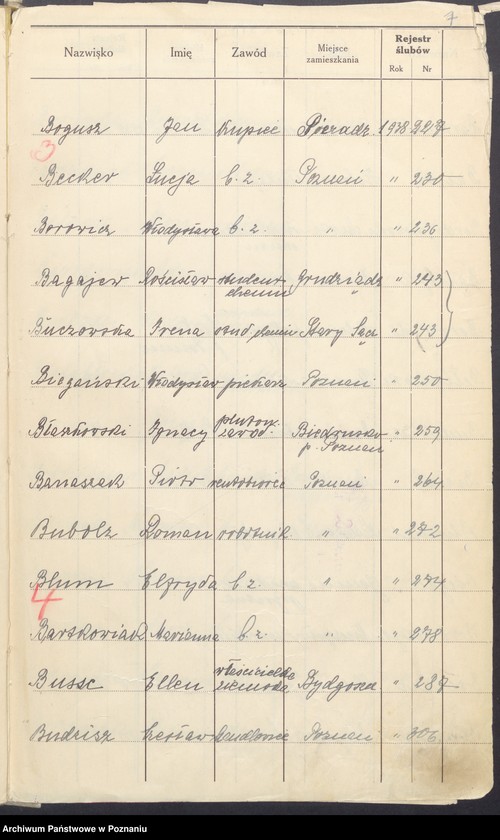 7
Nazwisko Imię Zawód Miejsce zamieszkania Rejestr ślubów Rok Nr
Bogusz Jan kupiec 1938 227
3
Becker Łucja b. z. Poznań " 230
Borowicz Władysława b. z. " " 236
Bagajew Rościsław student chemii Grudziądz " 243
Buczowska Irena stud. chemii Stary Sącz " 243
Biegański Władysław piekarz Poznań " 250
Błaszkowski Ignacy pluton. zawod. Biedrusko p. Poznań " 259
Banaszak Piotr Poznań " 264
Bubolz Roman robotnik " " 272
Blum Elfryda b. z. " " 274
4
Bartkowiak Marianna b. z. " " 278
Busse Ellen właścicielka ziemska Bydgoszcz " 287
Budzisz Czesław handlowiec Poznań " 306
Archiwum Państwowe w Poznaniu